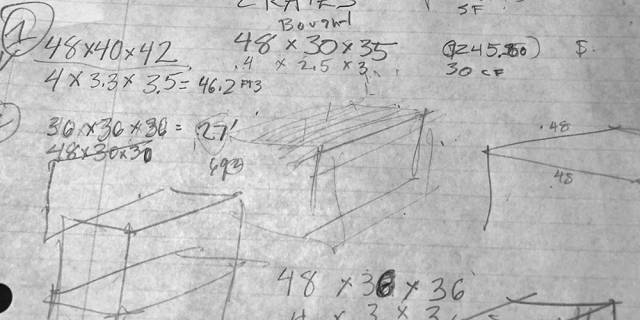 CRATES
SF
Bought
1
48 x 40 x 42
48 x 30 x 35
30 CF
$
4 x 3.3 x 3.5 = 46.2 FT3
4 x 2.5 x 3
36 x 36 x 36 = 27'
48 x 30 x 30
48
48
48 x 36 x 36
4 x 3 x 3